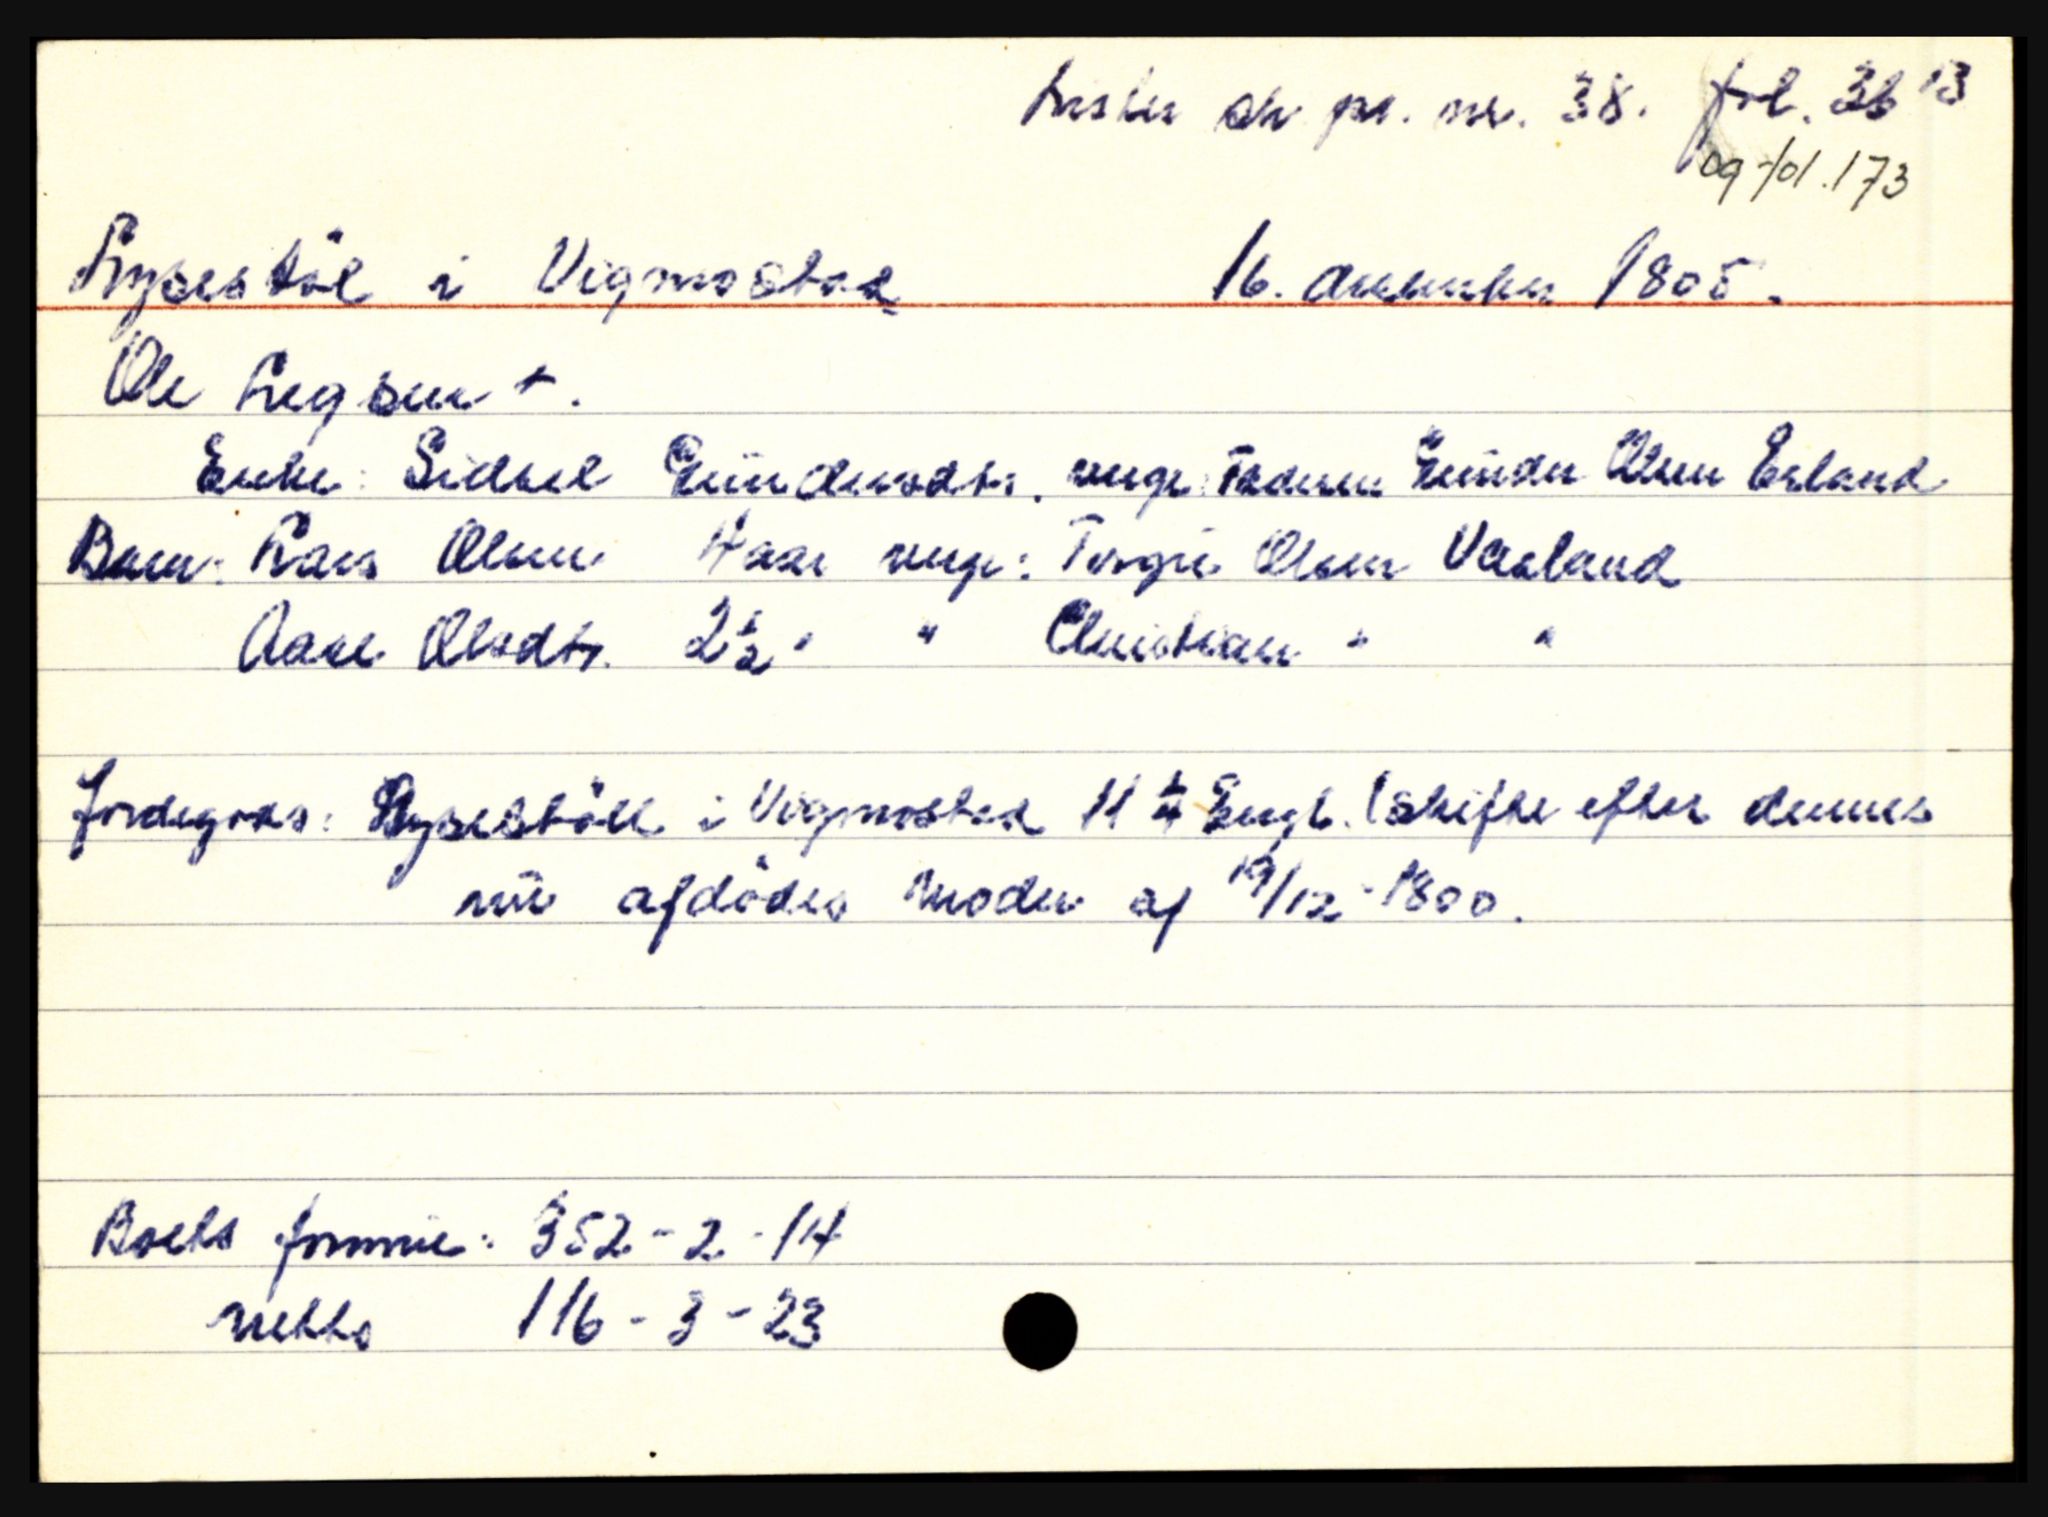 Lister sk. pr. nr. 38. fol. 36 B
og fol. 173
i Vigmostad 16. desember 1805.
Ole Legsen +.
Enke: Sidsel Gündersdtr. verge: Faderen Günder Olsen Erland
Barn: Lars Olsen 4 aar verge: Torgie Olsen Vaaland
Aase Olsdtr. 2½ " " Christian " "
Jordegods: i Vigmostad 11 ¼ Engl. (skifte efter dennes
nü afdödes moder af 19/12-1800.
Boets formüe: 352-2-14
netto 116-3-23